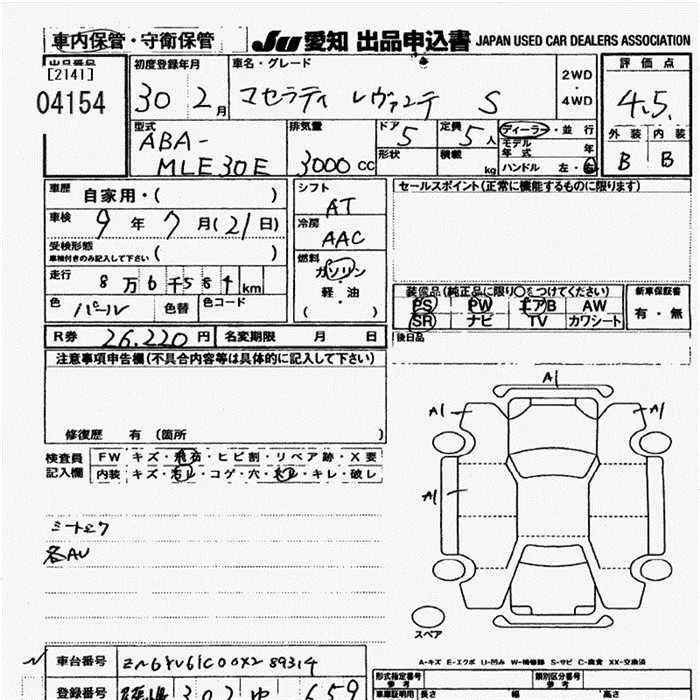 車内保管・守衛保管
JU 愛知 出品申込書 JAPAN USED CAR DEALERS ASSOCIATION
出品番号 初度登録年月 車名・グレード 2WD ・ 4WD 評価点
[2141]
04154 30 2月 マセラティ レヴァンテ S 4.5
外装 内装
B B
型式 排気量 ドア 定員 ディーラー・並行
ABA- 5 5人 モデル年式 年
MLE30E 3000cc 形状 積載 kg ハンドル 左・右
車歴 自家用・( ) シフト AT セールスポイント(正常に機能するものに限ります)
車検 9年7月(21日) 冷房 AAC
受検形態
車検付きのみ記入して下さい ( ) 燃料
ガソリン
軽・油
( )
走行 8万6千584km
色 パール 色替 色コード
装備品(純正品に限り○をつけてください) 新車保証書
PS PW エアB AW 有・無
SR ナビ TV カワシート
R券 26,220円 名変期限 月 日 後日品
注意事項申告欄(不具合内容等は具体的に記入して下さい)
修復歴 有(箇所 )
検査員記入欄 FW キズ・飛石・ヒビ割・リペア跡・X要
内装 キズ・ヨゴレ・コゲ・穴・スレ・キレ・破レ
A1
A1 A1
A1
シートスワ
各AU
スペア
A-キズ E-エクボ U-凹み W-補修跡 S-サビ C-腐食 XX-交換済
車台番号 ZN6YU61C00X289314
型式指定番号 類別区分番号
参考 参考
登録番号 302 659
車車証明用 長さ 幅 高さ